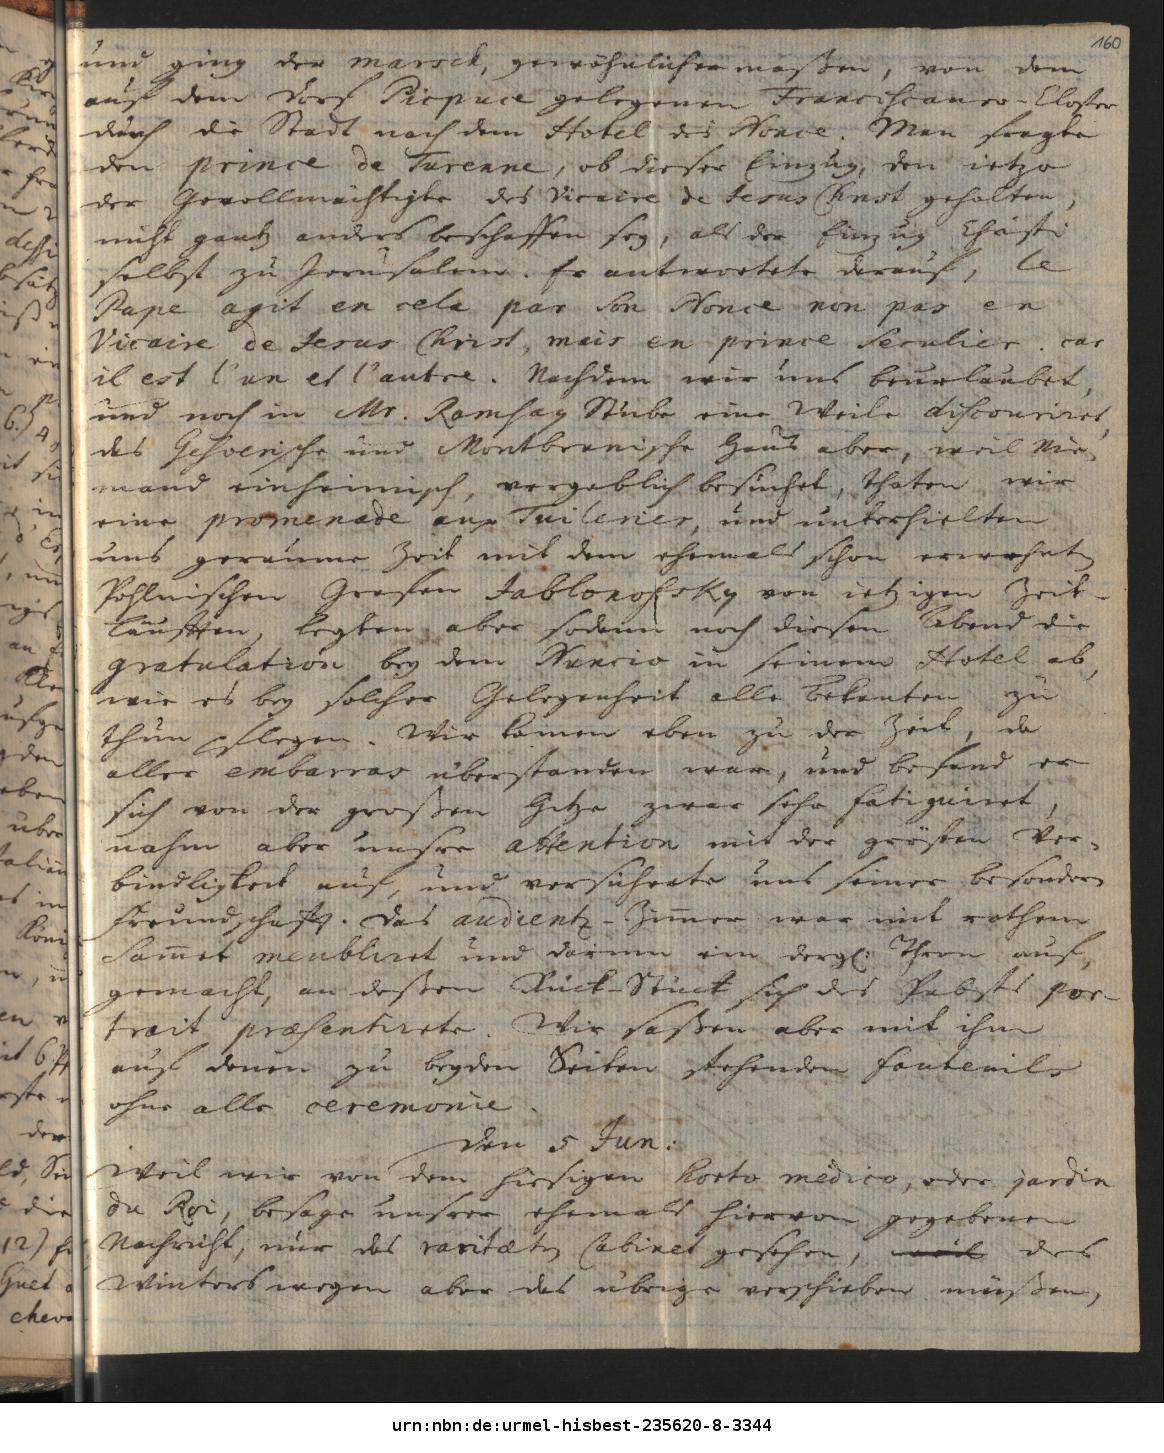 160
und ging der marsch, gewöhnlichermaßen, von dem
auf dem Dorf Picpuce gelegenen Franciscaner-Closter
durch die Stadt nach dem Hotel des Nonce. Man fragte
den prince de Turenne, ob dieser Einzug, den ietzo
der Gevollmächtigte des Vicaire de Jesus Christ gehalten,
nicht gantz anders beschaffen sey, als der Einzug Christi
selbst zu Jerusalem. Er antwortete darauf, le
Pape agit en cela par son Nonce non pas en
Vicaire de Jesus Christ, mais en prince seculier. car
il est l'un et l'autre. Nachdem wir uns beurlaubet,
und noch in Mr. Ramsay Stube eine Weile discouriret,
das und Haus aber, weil Nie-
mand einheimisch, vergeblich besuchet, thaten wir
eine promenade aux Tuileries, und unterhielten
uns geraume Zeit mit dem ehemals schon erwehnten
Pohlnischen Grafen Jablonofsky von ietzigen Zeit-
läufften, legten aber sodann noch diesen Abend die
gratulation bey dem Nuncio in seinem Hotel ab,
wie es bey solcher Gelegenheit alle Bekanten zu
thun pflegen. Wir kamen eben zu der Zeit, da
aller embarras überstanden war, und befand er
sich von der großen Hitze zwar sehr fatiguiret,
nahm aber unsre attention mit der grösten Ver-
bindligkeit auf, und versicherte uns seiner besondern
Freundschafft. Das audientz-Zimmer war mit rothem
Sammet meubliret und darinn ein dergl: Thron auf-
gemacht, an deßen Rück-Stück sich des Pabsts por-
trait præsentirete. Wir saßen aber mit ihm
auf denen zu beyden Seiten stehenden fauteuils
ohne alle ceremonie.
den 5 Jun:
Weil wir von dem hiesigen horto medico, oder jardin
du Roi, besage unsrer ehemals hiervon gegebenen
Nachricht, nur das raritæten Cabinet gesehen, weil des
Winters wegen aber das übrige verschieben müßen,
urn:nbn:de:urmel-hisbest-235620-8-3344